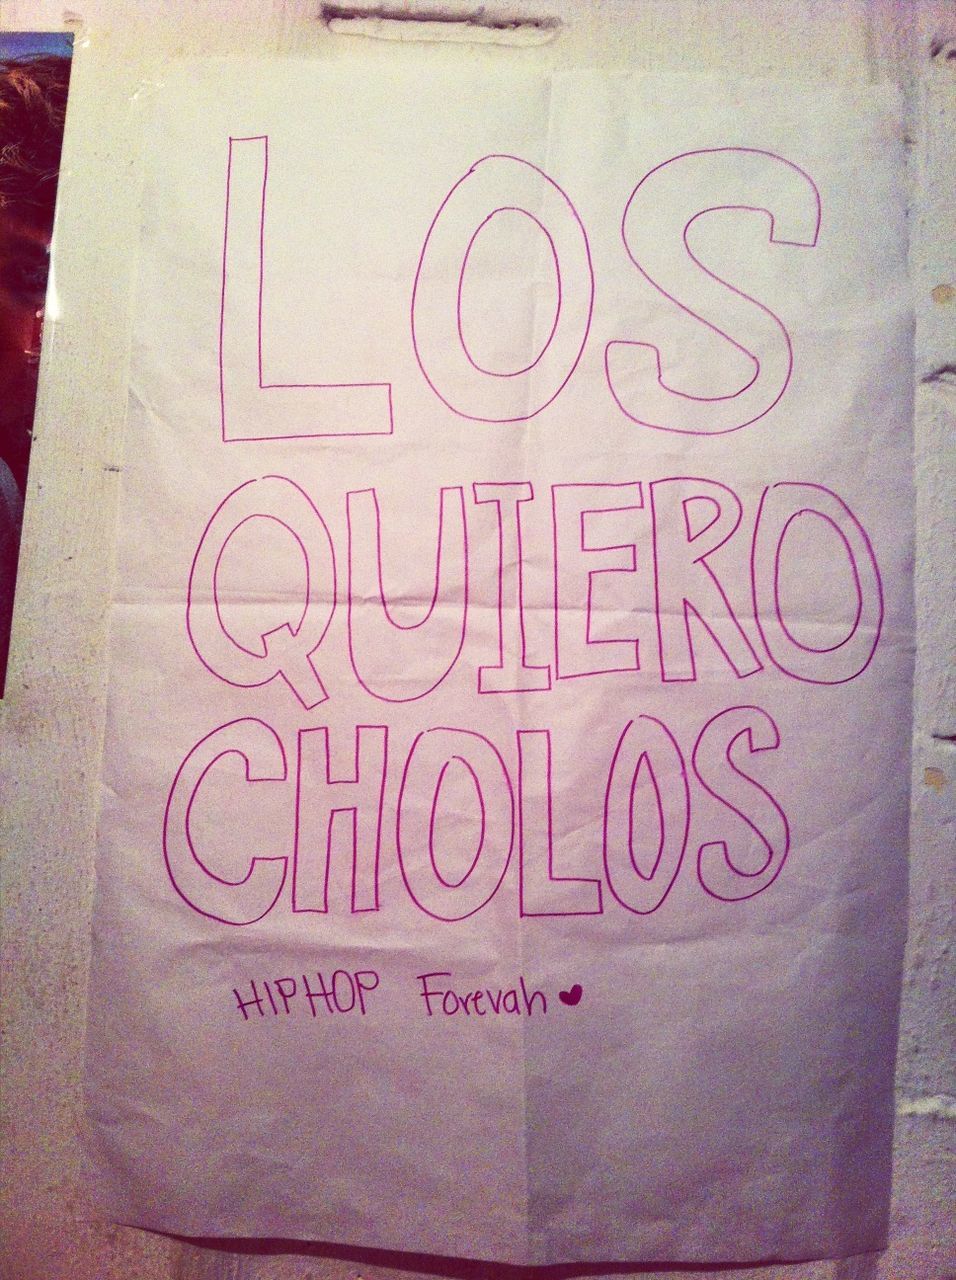 LOS
QUIERO
CHOLOS
HIPHOP Forevah ♥